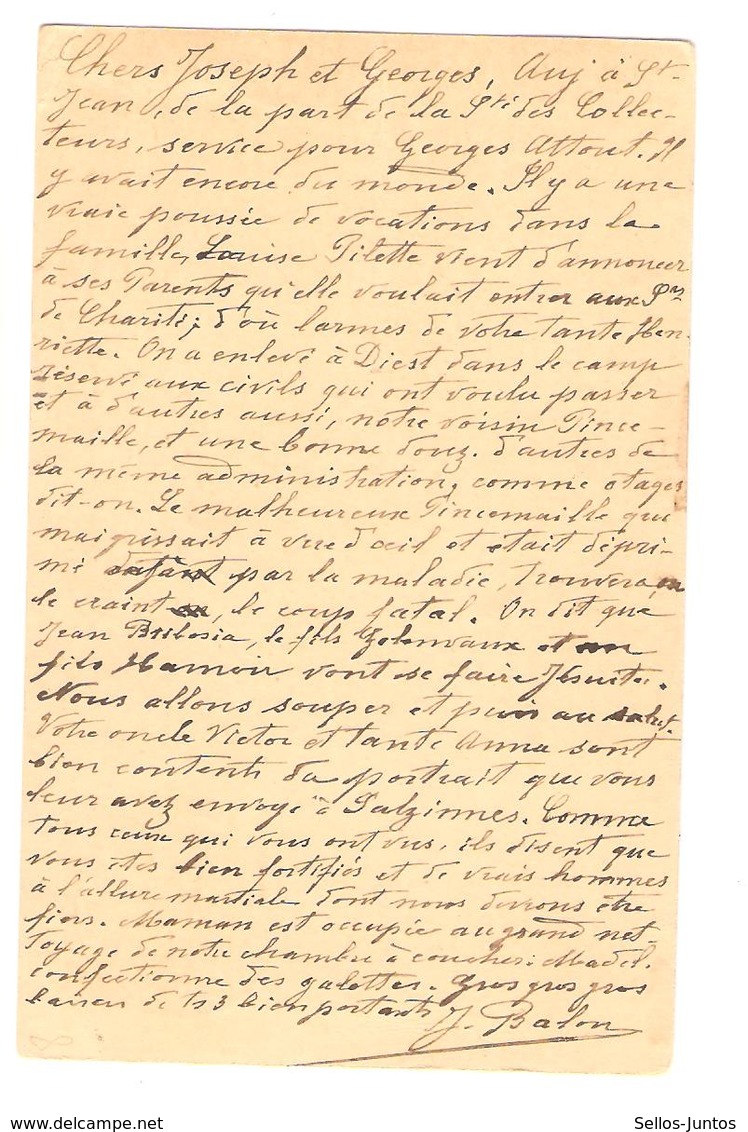 Chers Joseph et Georges, Auj à St-
Jean, de la part de la Sté des Collec-
teurs, service pour Georges Attout. Il
y avait encore du monde. Il y a une
vraie poussée de vocations dans la
famille, Louise Pilette vient d'annoncer
à ses Parents qu'elle voulait entrer aux Srs
de Charité; d'où larmes de votre tante Hen-
riette. On a enlevé à Diest dans le camp
réservé aux civils qui ont voulu passer
et à d'autres aussi, notre voisin Pince-
maille, et une bonne douz. d'autres de
la même administration, comme otages
dit-on. Le malheureux Pincemaille qui
maigrissait à vue d'œil et était dépri-
mé par la maladie, trouvera, on
le craint, le coup fatal. On dit que
Jean Bribosia, le fils et un
fils Hamoir vont se faire Jésuites.
Nous allons souper et puis au salut.
Votre oncle Victor et tante Anna sont
bien contents du portrait que vous
leur avez envoyé à Salzinnes. Comme
tous ceux qui vous ont vus, ils disent que
vous êtes bien fortifiés et de vrais hommes
à l'allure martiale dont nous devons être
fiers. Maman est occupée au grand net-
toyage de notre chambre à coucher: Madel.
confectionne des galettes. Gros gros gros
baisers de ts 3 bien portants J. Balon
Sellos-Juntos